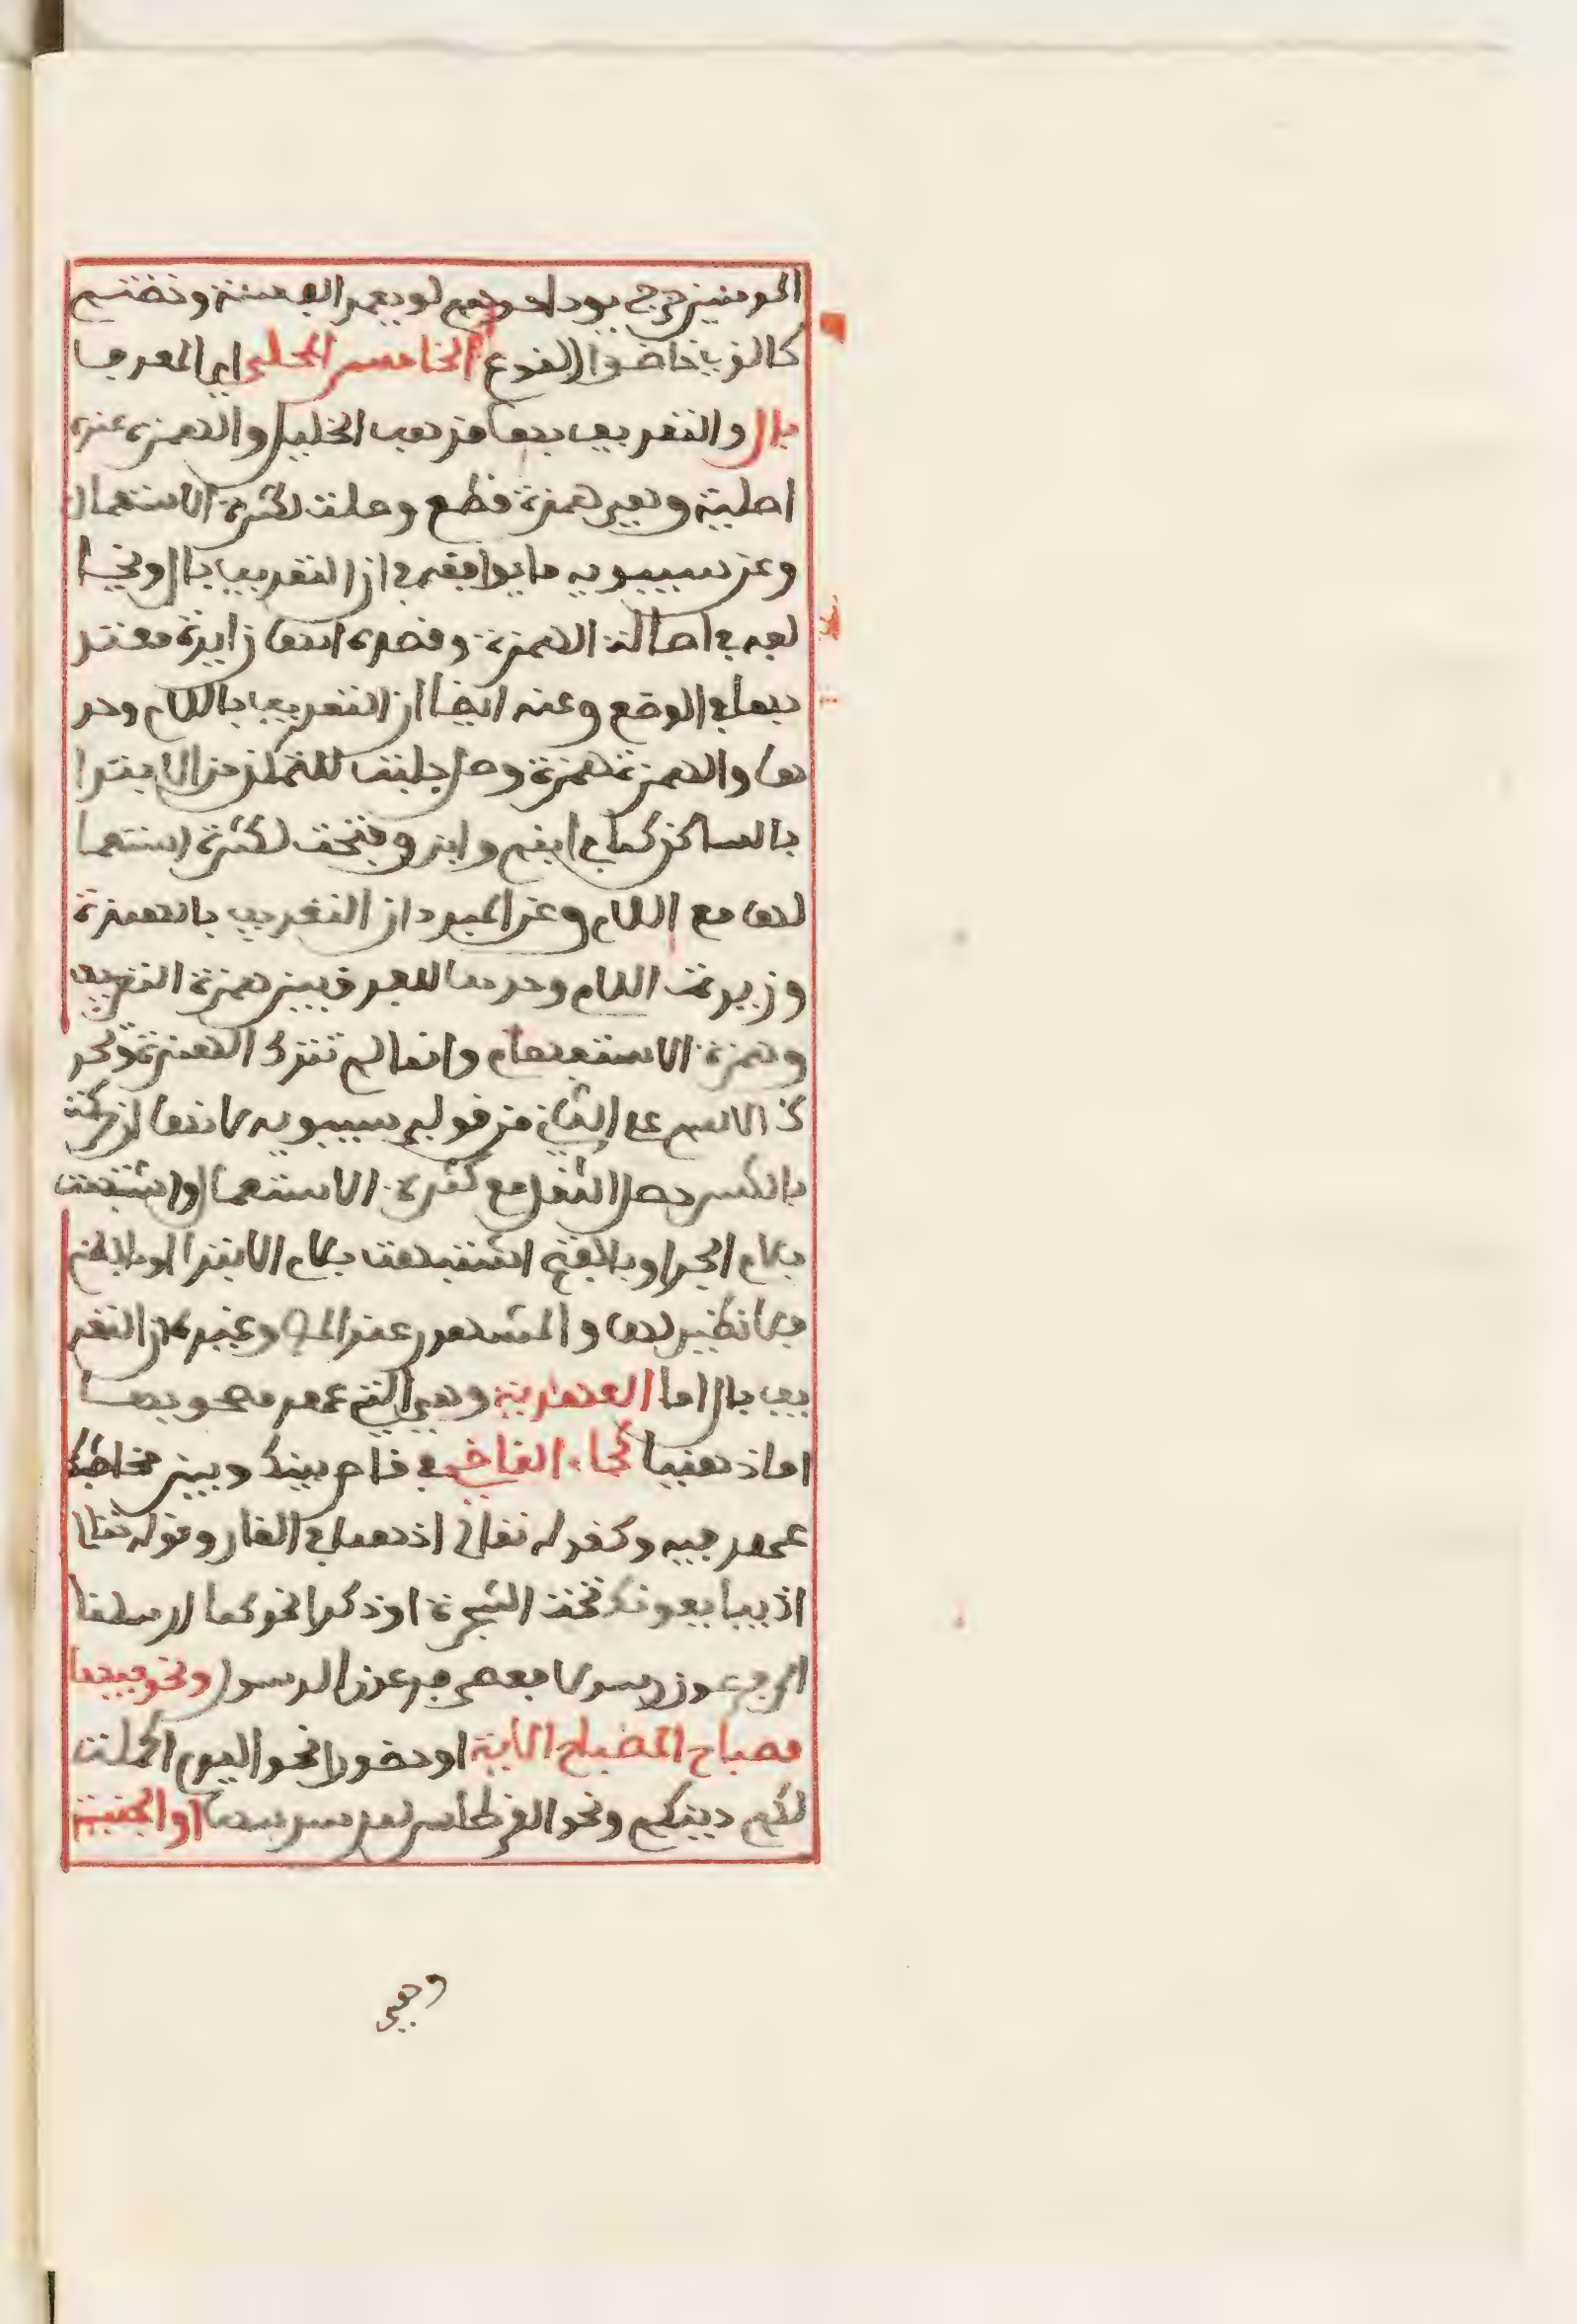 المومنين حرج يود احدهم لو يعمر الف سنة وخضتم
كالذي خاضوا النوع الخامس المحلى اي المعرف
بال والتعريف بها مذهب الخليل والهمزة عنده
اصلية وهي همزة قطع وصلت لكثرة الاستعمال
وعن سيبويه ما يوافقه في ان التعريف بال ويخا
لفه في اصالة الهمزة وعنده انها زايدة معتد
بها في الوضع وعنه ايضا ان التعريف باللام وحد
ها والهمزة همزة وصل جلبت للتمكن من الابتدا
بالساكن كما في ابنم وابن وفتحت لكثرة استعما
لها مع اللام وعن المبرد ان التعريف بالهمزة
وزيدت اللام وحدها للفرق بين همزة التعريف
وهمزة الاستفهام وانما لم تترك الهمزة وتحر
ك الاسم على الثاني من قولي سيبويه لانها ان حركت
بالكسر حصل الثقل مع كثرة الاستعمال واشتبهت
بلام الجر او بالفتح اشتبهت بلام الابتدا او بالضم
فلا نظير لها والمشهور عند وغيره ان التعر
يف بال اما العهدية وهي التي عهد مصحوبها
اما ذهنيا كجاء القاضي في قاض بينك وبين مخاطبك
عهد فيه وكقوله تعالى اذ هما في الغار وقوله تعالى
اذ يبايعونك تحت الشجرة او ذكرا نحو كما ارسلنا
الى فرعون رسولا فعصى فرعون الرسول ونحو فيها
مصباح المصباح الاية او حضورا نحو اليوم اكملت
لكم دينكم ونحو القرطاس لمن سدد سهما او الجنسية
وهي